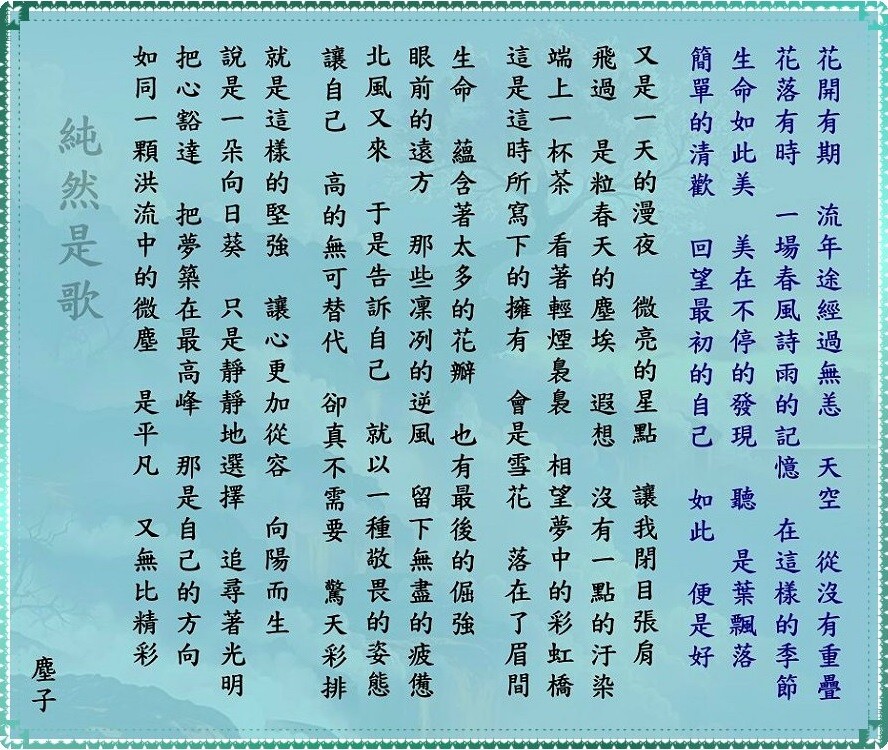 花開有期　流年途經過無恙　天空　從沒有重疊
花落有時　一場春風詩雨的記憶　在這樣的季節
生命如此美　美在不停的發現　聽　是葉飄落
簡單的清歡　回望最初的自己　如此　便是好
又是一天的漫夜　微亮的星點　讓我閉目張肩
飛過　是粒春天的塵埃　遐想　沒有一點的汙染
端上一杯茶　看著輕煙裊裊　相望夢中的彩虹橋
這是這時所寫下的擁有　會是雪花　落在了眉間
生命　蘊含著太多的花瓣　也有最後的倔強
眼前的遠方　那些凜冽的逆風　留下無盡的疲憊
北風又來　于是告訴自己　就以一種敬畏的姿態
讓自己　高的無可替代　卻真不需要　驚天彩排
就是這樣的堅強　讓心更加從容　向陽而生
說是一朵向日葵　只是靜靜地選擇　追尋著光明
把心豁達　把夢築在最高峰　那是自己的方向
如同一顆洪流中的微塵　是平凡　又無比精彩
純然是歌
塵子